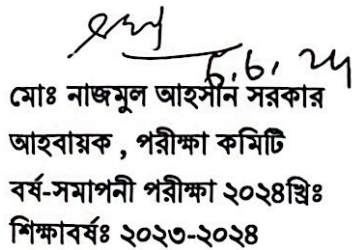 6.6.24
মোঃ নাজমুল আহসান সরকার
আহবায়ক , পরীক্ষা কমিটি
বর্ষ-সমাপনী পরীক্ষা ২০২৪খ্রিঃ
শিক্ষাবর্ষঃ ২০২৩-২০২৪